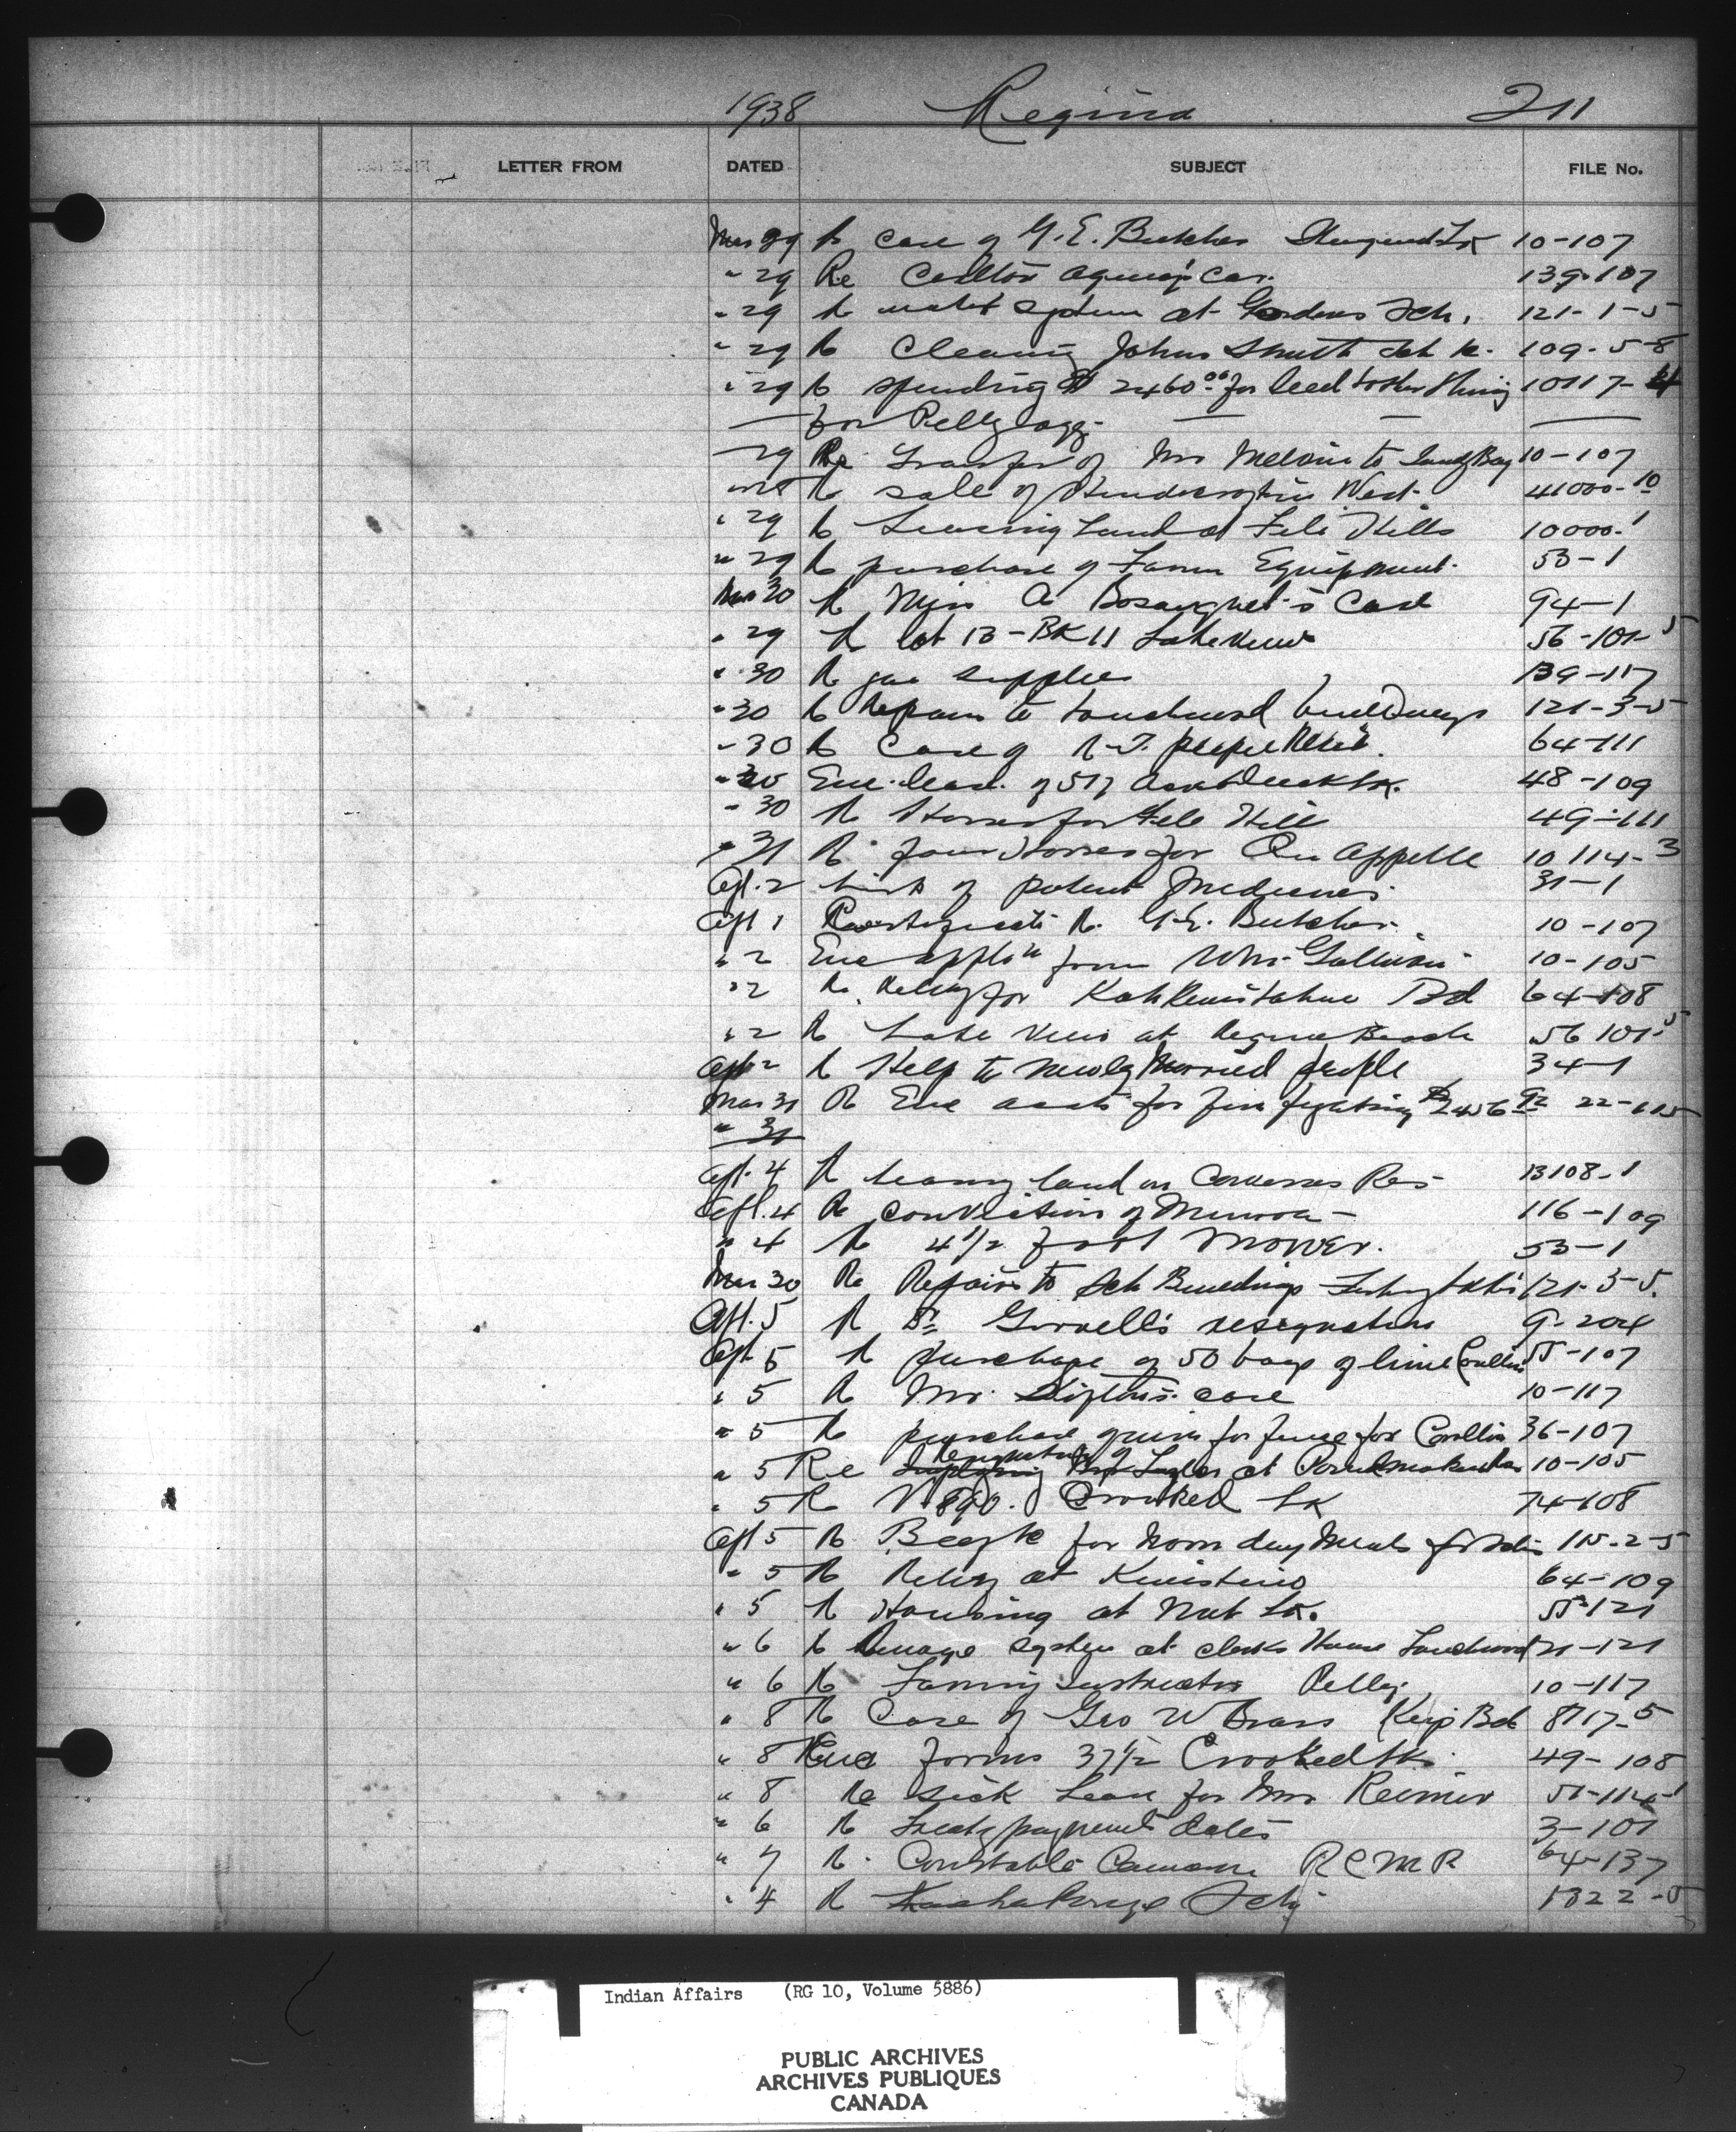 1938 Regina 211
LETTER FROM DATED SUBJECT FILE No.
Mar 29 Re Case of G. E. Butcher 10-107
" 29 Re Carlton Agency Car. 139-107
" 29 Re water system at Gordons Sch. 121-1-5
" 29 Re Cleaning Johns Smith Sch 109-5-8
" 29 Re spending $2460.00 for 10117-4
— for Pelly Agy. — — —
29 Re Transfer of Mrs to Sandy Bay 10-107
Re sale of West. 41000-10
" 29 Re Leasing Land at File Hills 10000-1
" 29 Re purchase of Farm Equipment. 53-1
Mar 30 Re Miss A Bosanquet's Case 94-1
" 29 Re lot 13 - BK 11 Lakeview 56-101-5
" 30 Re gas supplies 139-117
" 30 Re Repairs to Touchwood buildings 121-3-5
" 30 Re Case of R-T. 64-111
" 30 Enc. lease. of 517 48-109
" 30 Re Horses for File Hill 49-111
" 31 Re four Horses for Qu Appelle 10114-3
Apl. 2 List of patent Medicines. 31-1
Apl 1 Re. G.E. Butcher. 10-107
" 2 Enc appl'n from Wm. Sullivan 10-105
" 2 Re. Relief for Kahkewistahaw Bd 64-108
" 2 Re Lake View at Regina Beach 56 101-5
Apl 2 Re Help to newly Married people 34-1
Mar 31 Re Enc accts for fire fighting $2456 92 22-115
" 31
Apl. 4 Re leasing land on Cowesses Res 13108-1
Apl. 4 Re conviction of 116-109
" 4 Re 4 1/2 foot Mower. 53-1
Mar 30 Re Repairs to Sch Buildings 121-3-5.
Apl. 5 Re Dr. Gorrell's resignation 9-204
Apl 5 Re purchase of 50 bags of lime Carlton 55-107
" 5 Re Mr. case 10-117
" 5 Re purchase for fence for Carlton 36-107
" 5 Re Resignation of Taylor at Poundmaker 10-105
" 5 Re V 890. Crooked Lk 74-108
Apl 5 Re for Noon day Meals 115-2-5
" 5 Re Relief at Kinistino 64-109
" 5 Re Housing at Nut Lk. 55-121
" 6 Re system at clerks House Touchwood 21-121
" 6 Re Farming Instructor Pelly. 10-117
" 8 Re Case of Geo W Brass Key Bd 8717-5
" 8 Enc forms 37 1/2 Crooked Lk. 49-108
" 8 Re sick Leave for Mrs Reimer 51-114-1
" 6 Re Treaty payment dates 3-101
" 7 Re. Constable Cameron R C M P 64-137
" 4 Re 1322-5
Indian Affairs (RG 10, Volume 5886)
PUBLIC ARCHIVES
ARCHIVES PUBLIQUES
CANADA